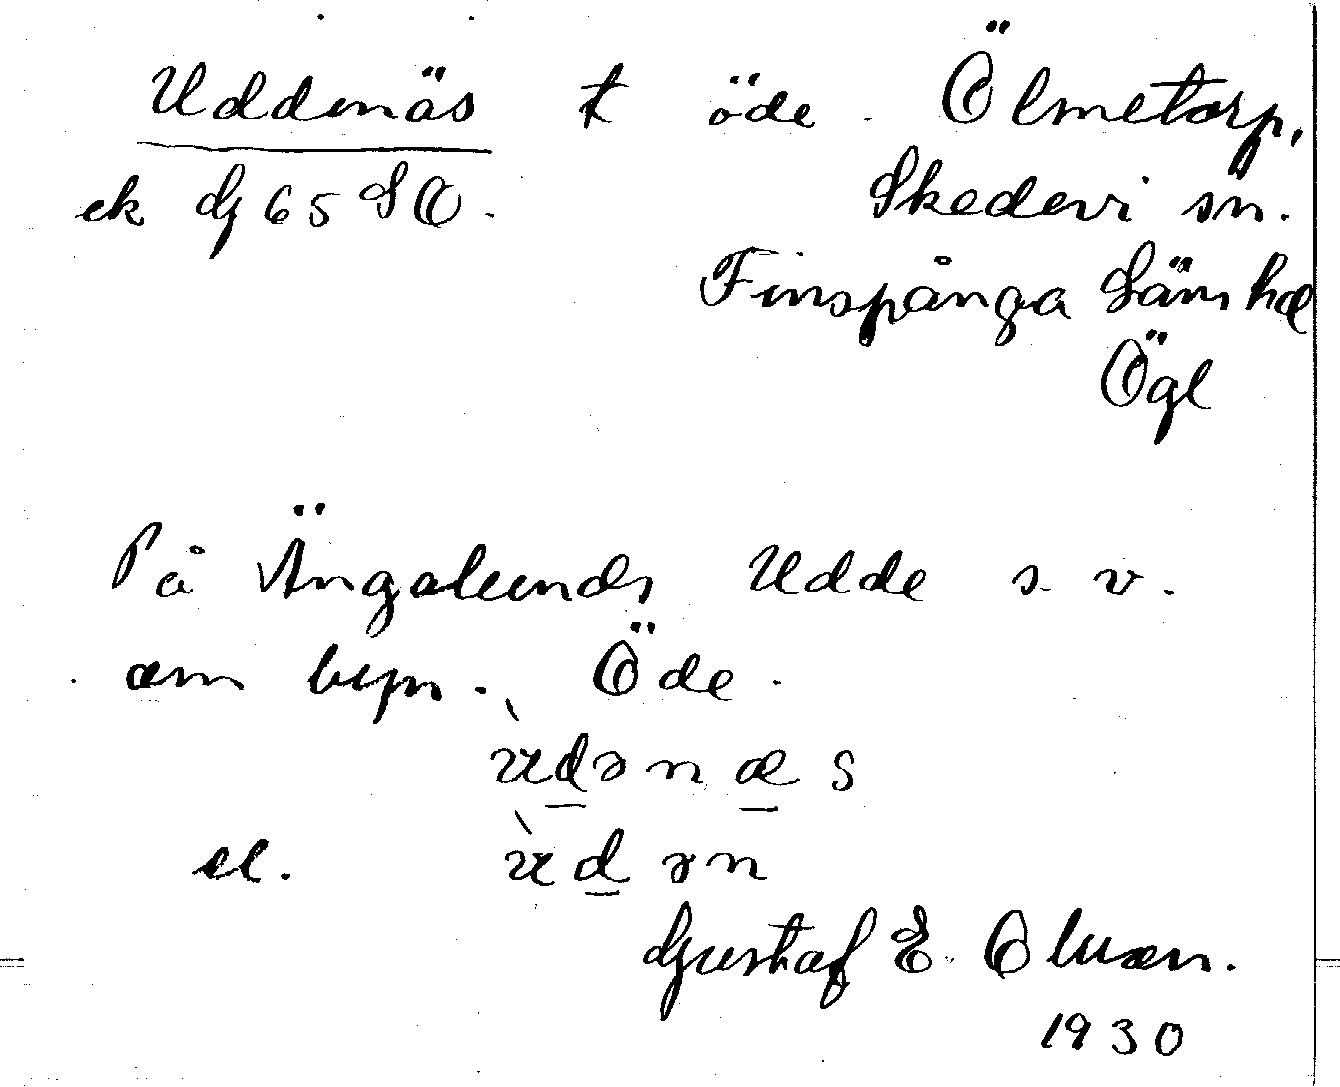 Uddenäs t öde. Ölmetorp,
ek G 65 SO. Skedevi sn.
Finspånga läns hd
Ögl
På Ängalunds Udde s. v.
om byn. Öde.
ùdənæs
el. ùdən
Gustaf E. Olsson.
1930